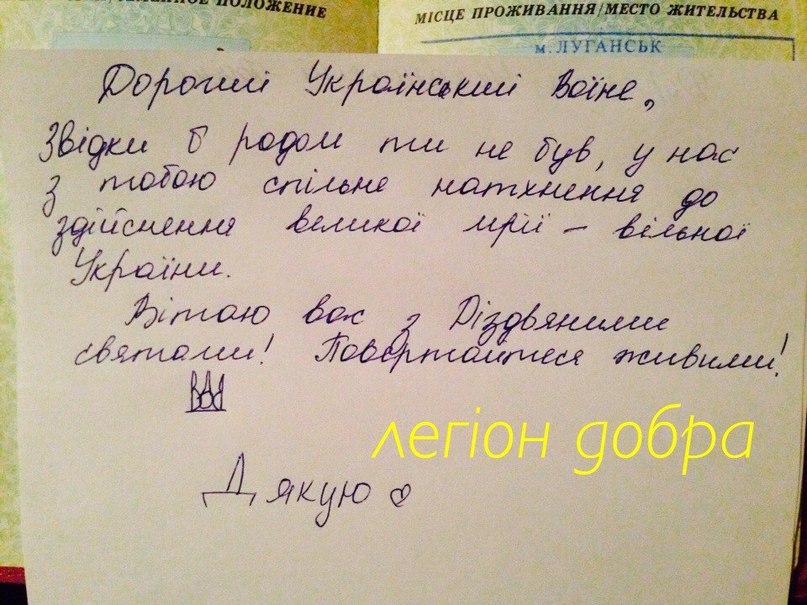 ПОЛОЖЕНИЕ
МІСЦЕ ПРОЖИВАННЯ/МЕСТО ЖИТЕЛЬСТВА
м. ЛУГАНСЬК
Дорогий Український Воїне,
Звідки б родом ти не був, у нас
з тобою спільне натхнення до
здійснення великої мрії – вільної
України.
Вітаю вас з Різдвяними
святами! Повертайтеся живими!
легіон добра
Дякую ♡